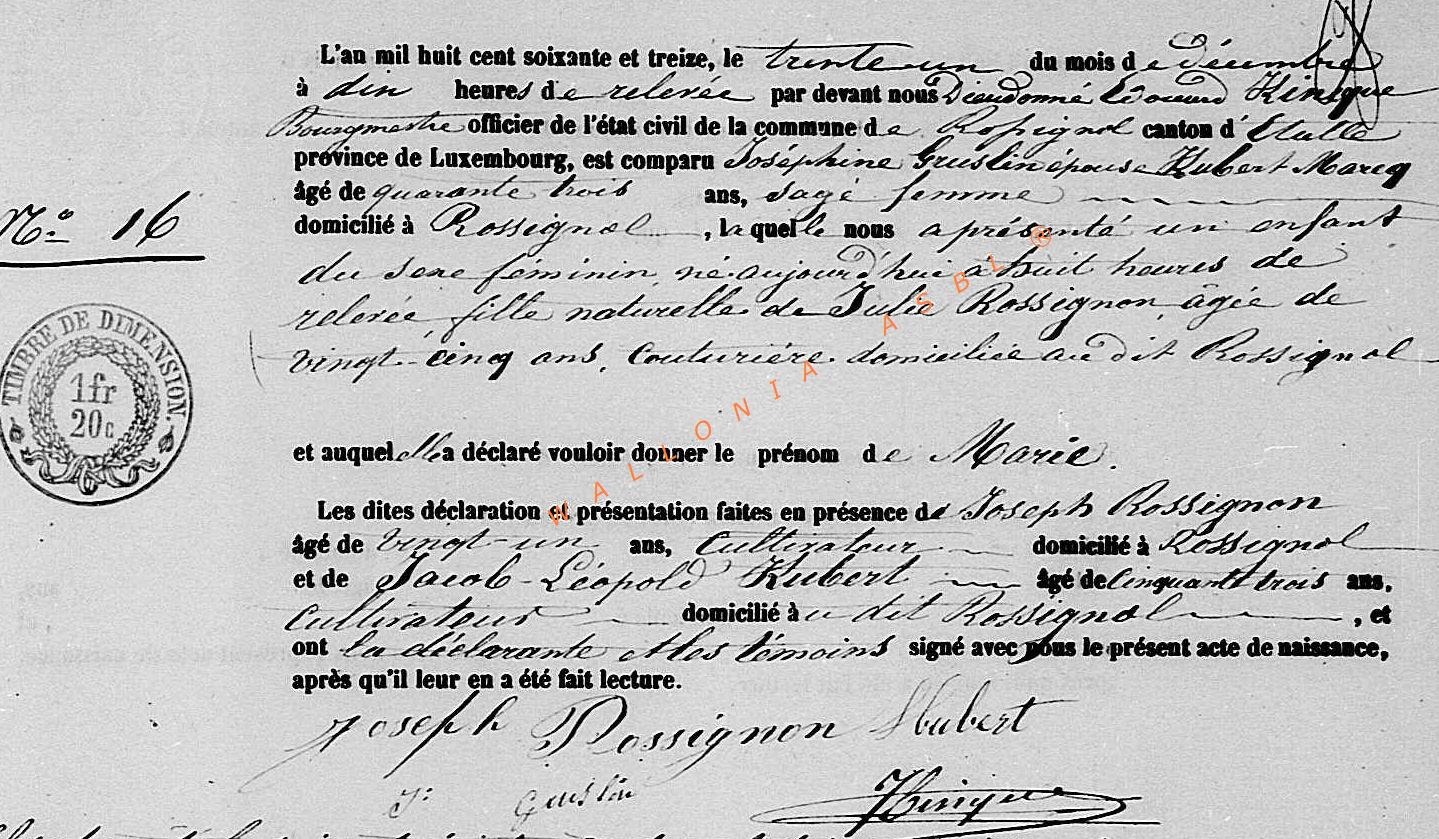 L'an mil huit cent soixante et treize, le trente un du mois de décembre
à dix heures de relevée par devant nous Dieudonné Edouard Hinique
Bourgmestre officier de l'état civil de la commune de Rossignol canton d'Etalle
province de Luxembourg, est comparu Joséphine Gruslin épouse Hubert Marcq
âgé de quarante trois ans, sage femme
domicilié à Rossignol, laquelle nous a présenté un enfant
du sexe féminin, né aujourd'hui à huit heures de
relevée, fille naturelle de Julie Rossignon, âgée de
vingt-cinq ans, couturière domiciliée au dit Rossignol
Nº 16
TIMBRE DE DIMENSION.
1fr
20c
et auquel elle a déclaré vouloir donner le prénom de Marie.
Les dites déclaration et présentation faites en présence de Joseph Rossignon
âgé de vingt-un ans, Cultivateur domicilié à Rossignol
et de Jacob-Léopold Hubert âgé de cinquante trois ans,
Cultivateur domicilié au dit Rossignol, et
ont la déclarante et les témoins signé avec nous le présent acte de naissance,
après qu'il leur en a été fait lecture.
Joseph Rossignon Hubert
J. Gruslin Hinique
WALLONIA ASBL ®